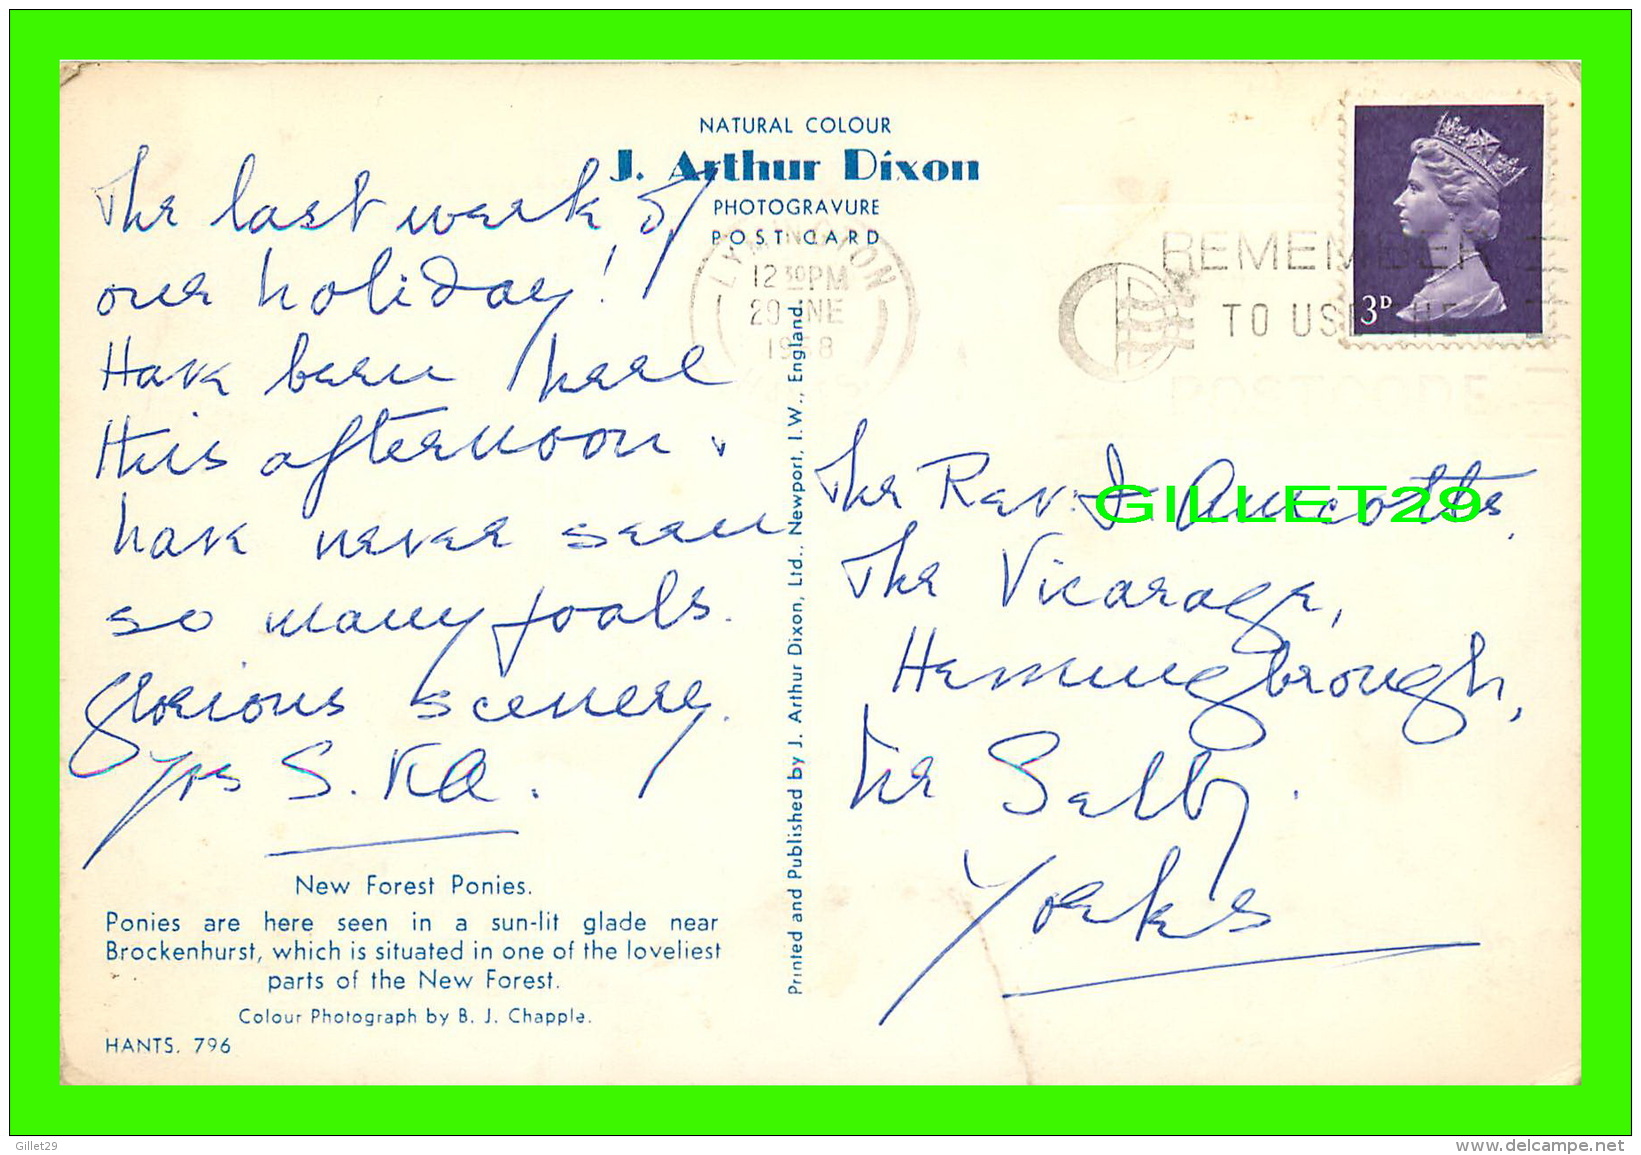 NATURAL COLOUR
J. Arthur Dixon
PHOTOGRAVURE
POST CARD
The last week of
our holiday!
Have been here
this afternoon.
have never seen
so many foals.
Glorious scenery.
Yrs S.
New Forest Ponies.
Ponies are here seen in a sun-lit glade near
Brockenhurst, which is situated in one of the loveliest
parts of the New Forest.
Colour Photograph by B. J. Chapple.
HANTS. 796
Printed and Published by J. Arthur Dixon, Ltd., Newport, I.W., England.
LYMINGTON
12 30PM
20 JNE
1968
REMEMBER
TO USE THE
POSTCODE
3D
The Rev. J.
The Vicarage,
Hemingbrough,
Nr Selby.
Yorks
GILLET29
Gillet29
www.delcampe.net